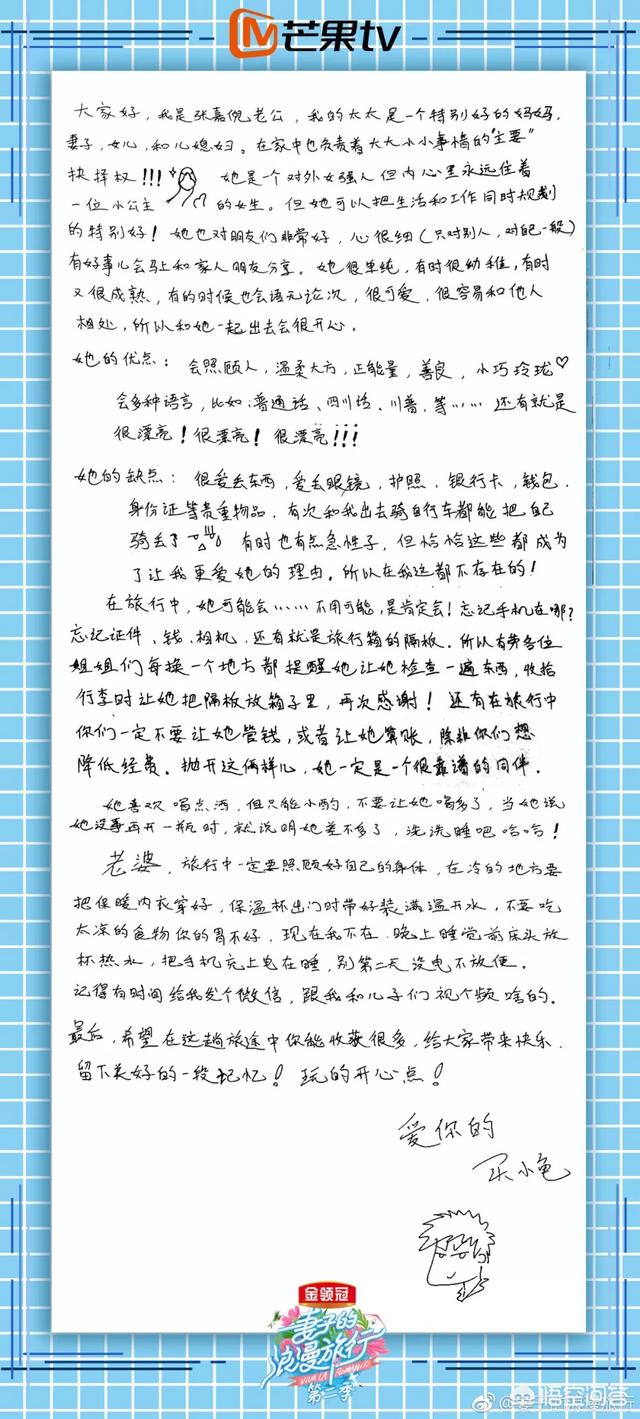 芒果tv
大家好，我是张嘉倪老公，我的太太是一个特别好的妈妈，
妻子，女儿，和儿媳妇。在家中也负责着大大小小事情的"主要"
抉择权!!! 她是一个对外女强人但内心里永远住着
一位小公主 的女生。但她可以把生活和工作同时规划
的特别好！她也对朋友们非常好，心很细（只对别人，对自己一般）
有好事儿会马上和家人朋友分享。她很单纯，有时很幼稚，有时
又很成熟，有的时候也会语无论次，很可爱，很容易和他人
相处，所以和她一起出去会很开心。
她的优点：会照顾人，温柔大方，正能量，善良，小巧玲珑♡
会多种语言，比如：普通话、四川话、川普、等…… 还有就是
很漂亮！很漂亮！很漂亮!!!
她的缺点：很爱丢东西，爱丢眼镜，护照、银行卡，钱包，
身份证等贵重物品，有次和我出去骑自行车都能把自己
骑丢了 有时也有点急性子，但恰恰这些都成为
了让我更爱她的理由。所以在我这都不存在的！
在旅行中，她可能会……不用可能，是肯定会！忘记手机在哪？
忘记证件、钱、相机，还有就是旅行箱的隔板。所以有劳各位
姐姐们每换一个地方都提醒她让她检查一遍东西，收拾
行李时让她把隔板放箱子里，再次感谢！还有在旅行中
你们一定不要让她管钱，或者让她算账，除非你们想
降低经费。抛开这俩样儿，她一定是一个很靠谱的同伴。
她喜欢喝点酒，但只能小酌，不要让她喝多了，当她说
她没事再开一瓶时，就说明她差不多了，洗洗睡吧哈哈！
老婆，旅行中一定要照顾好自己的身体，在冷的地方要
把保暖内衣穿好，保温杯出门时带好装满温开水，不要吃
太凉的食物你的胃不好，现在我不在，晚上睡觉前床头放
杯热水，把手机充上电在睡，别第二天没电不放便。
记得有时间给我发个微信，跟我和儿子们视个频啥的。
最后，希望在这趟旅途中你能收获很多，给大家带来快乐，
留下美好的一段记忆！玩的开心点！
爱你的
买小龟
金领冠
妻子的
浪漫旅行
VIVA LA ROMANCE
第二季
悟空问答